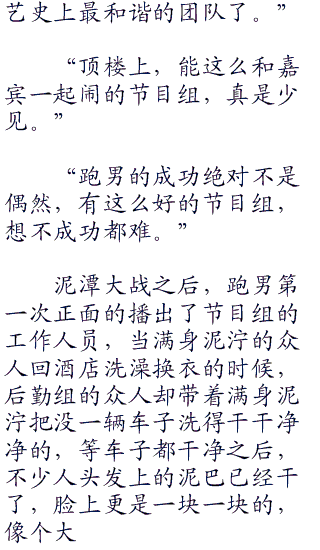 艺史上最和谐的团队了。”
“顶楼上，能这么和嘉
宾一起闹的节目组，真是少
见。”
“跑男的成功绝对不是
偶然，有这么好的节目组，
想不成功都难。”
泥潭大战之后，跑男第
一次正面的播出了节目组的
工作人员，当满身泥泞的众
人回酒店洗澡换衣的时候，
后勤组的众人却带着满身泥
泞把没一辆车子洗得干干净
净的，等车子都干净之后，
不少人头发上的泥巴已经干
了，脸上更是一块一块的，
像个大